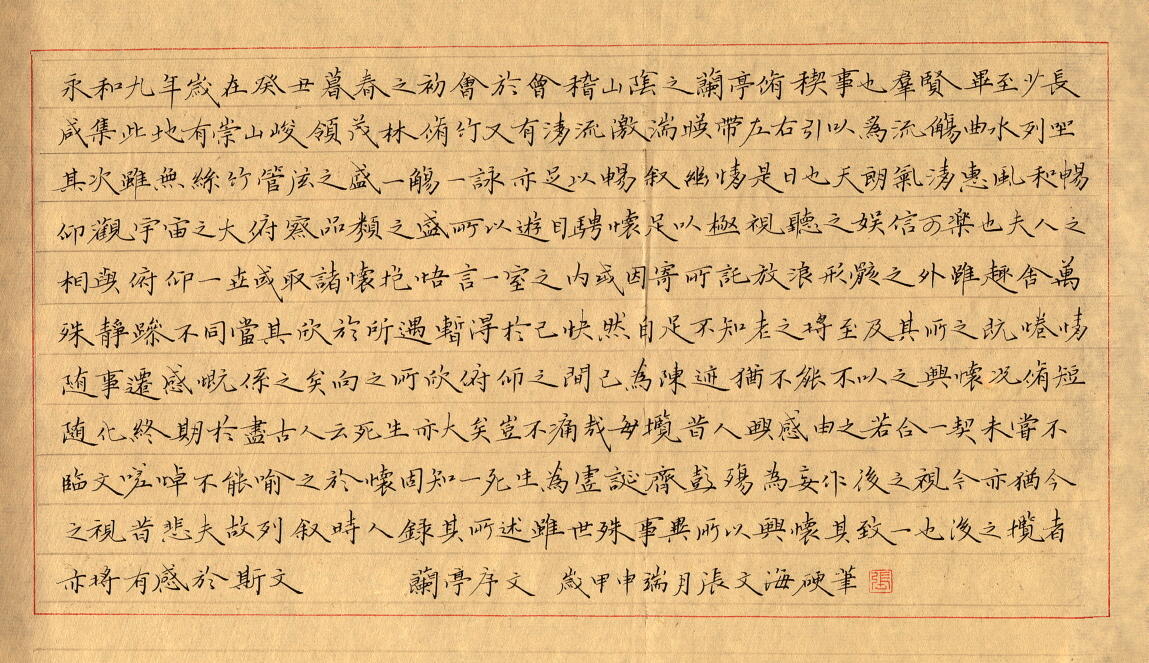 永和九年歲在癸丑暮春之初會於會稽山陰之蘭亭脩稧事也羣賢畢至少長
咸集此地有崇山峻領茂林脩竹又有清流激湍暎帶左右引以爲流觴曲水列坐
其次雖無絲竹管弦之盛一觴一詠亦足以暢叙幽情是日也天朗氣清惠風和暢
仰觀宇宙之大俯察品類之盛所以遊目騁懷足以極視聽之娛信可樂也夫人之
相與俯仰一世或取諸懷抱悟言一室之內或因寄所託放浪形骸之外雖趣舍萬
殊靜躁不同當其欣於所遇暫得於己快然自足不知老之將至及其所之既惓情
随事遷感慨係之矣向之所欣俯仰之間已為陳迹猶不能不以之興懷況脩短
随化終期於盡古人云死生亦大矣豈不痛哉每攬昔人興感由之若合一契未嘗不
臨文嗟悼不能喻之於懷固知一死生為虛誕齊彭殤為妄作後之視今亦猶今
之視昔悲夫故列叙時人錄其所述雖世殊事異所以興懷其致一也後之攬者
亦將有感於斯文 蘭亭序文 歲甲申端月張文海硬筆 張